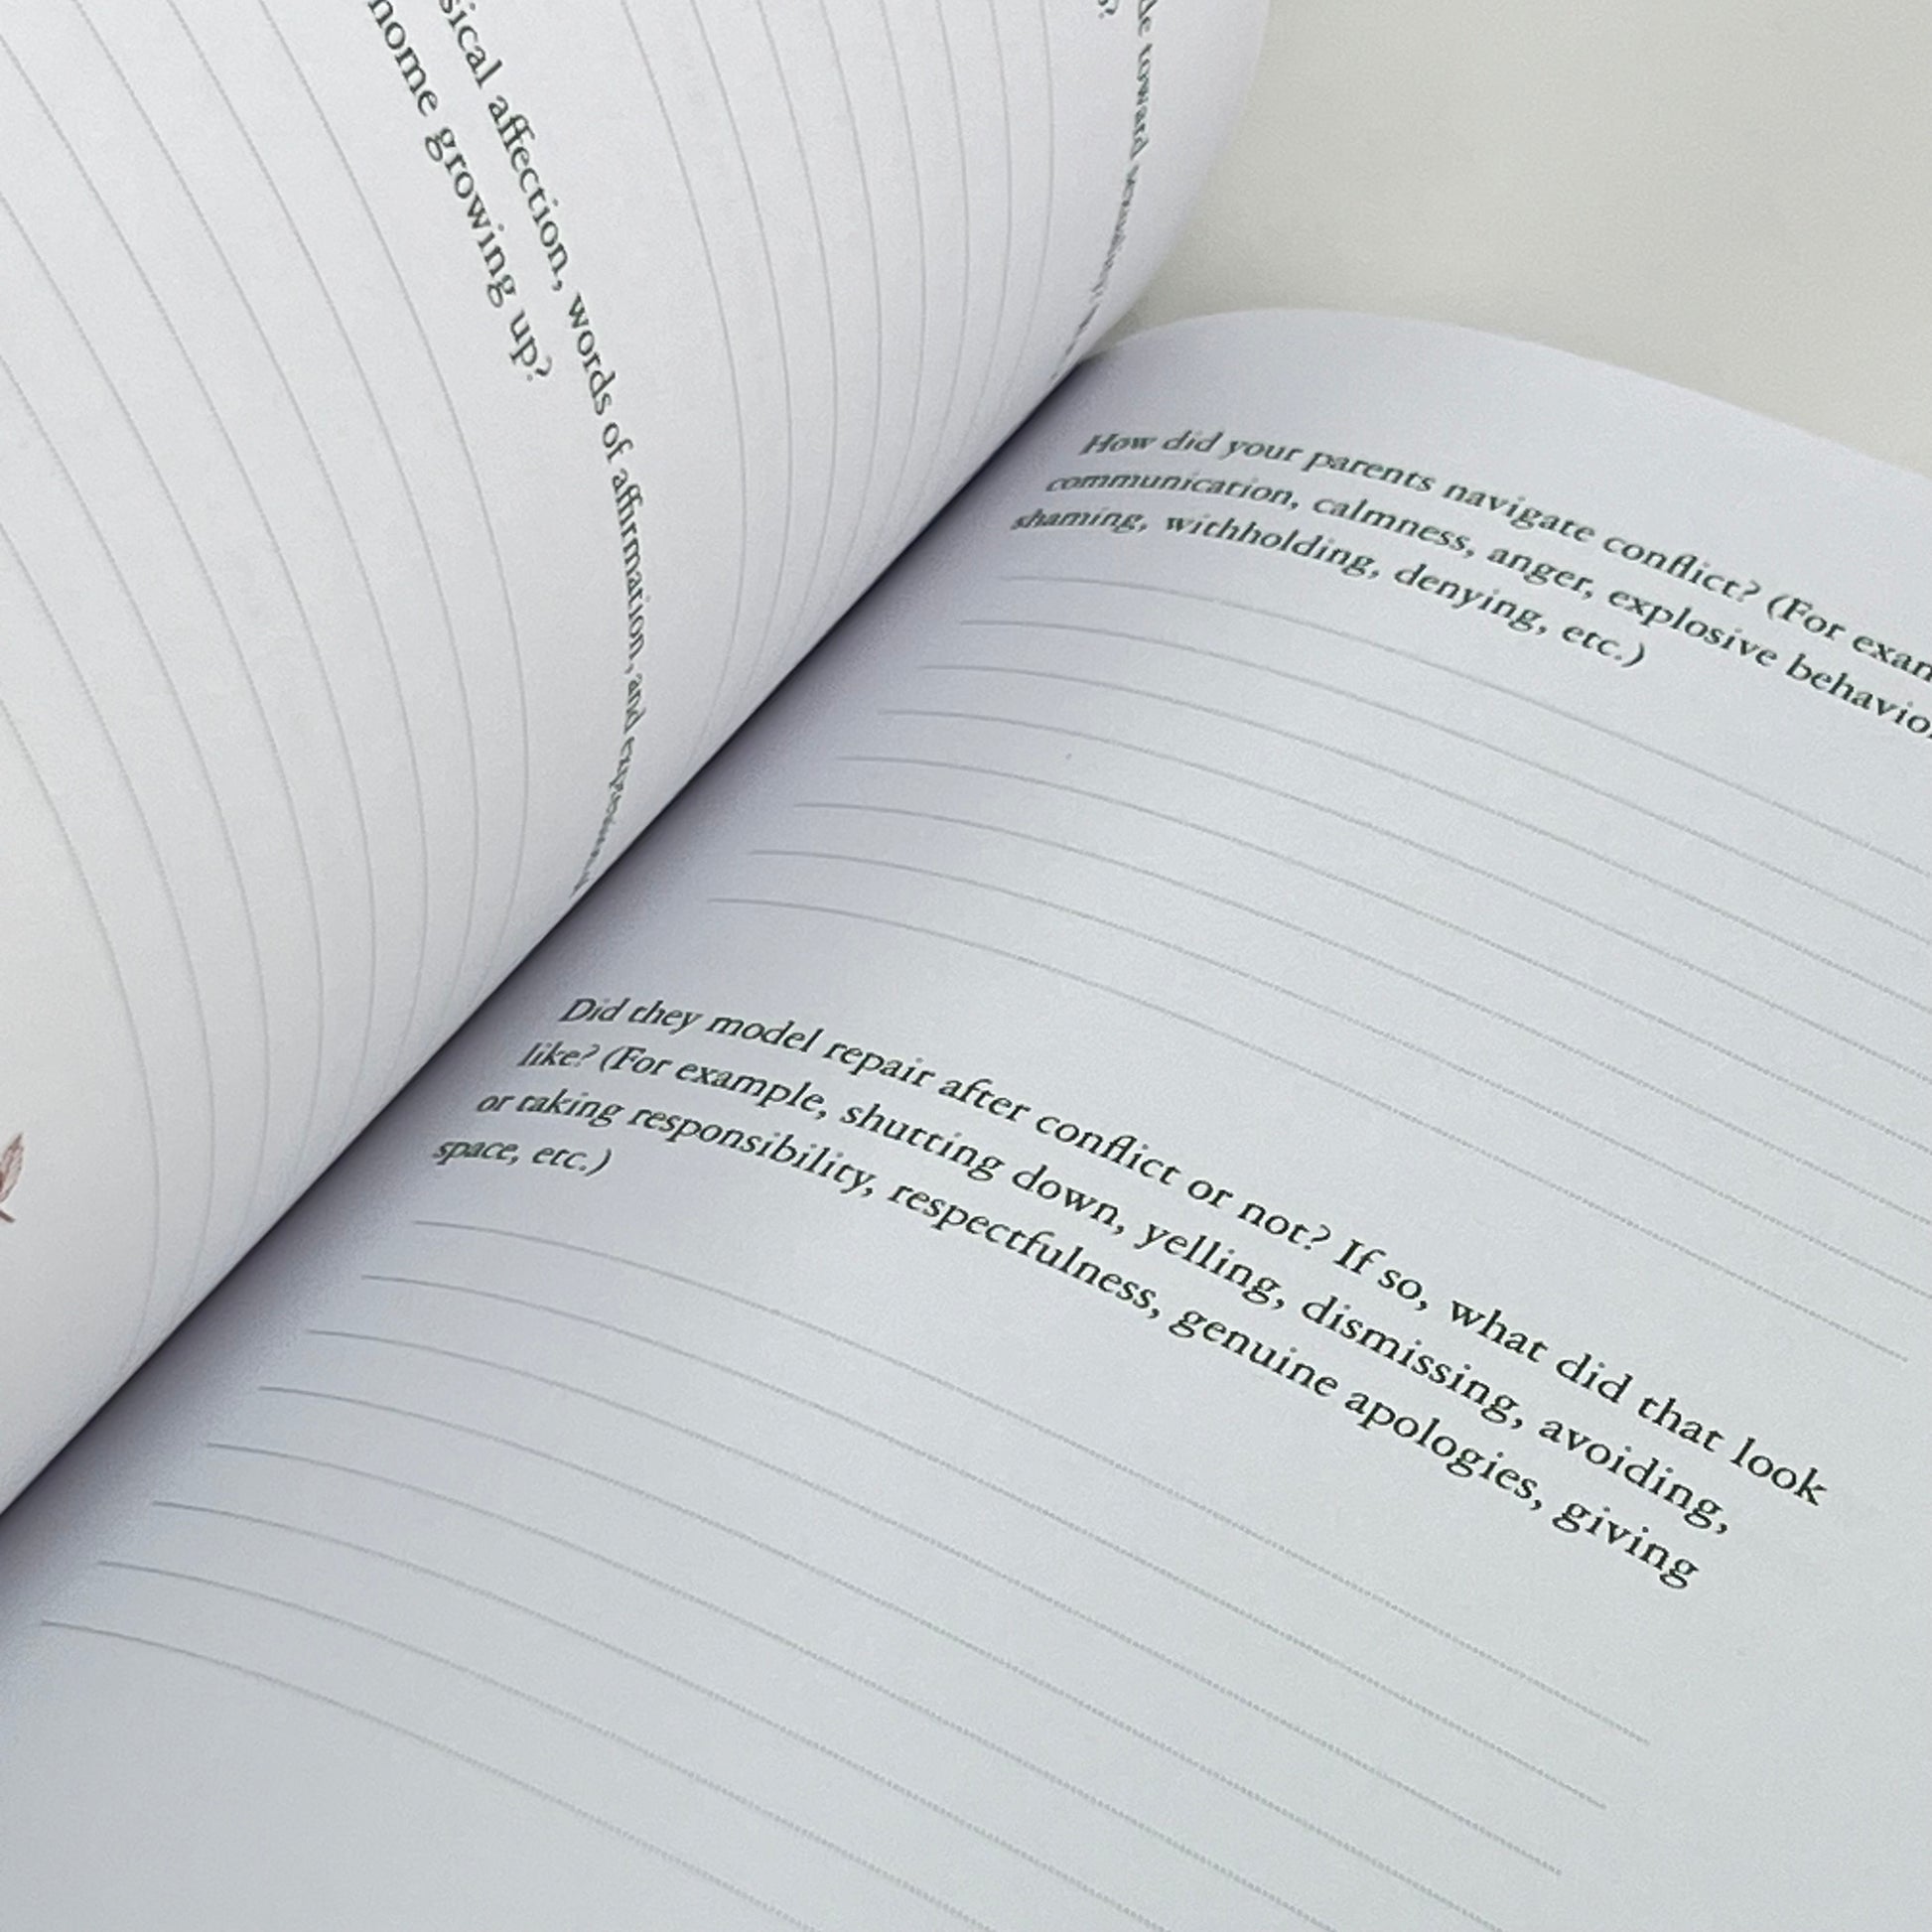 toward sexuality
sical affection, words of affirmation, and
home growing up?
How did your parents navigate conflict? (For
communication, calmness, anger, explosive
shaming, withholding, denying, etc.)
Did they model repair after conflict or not? If so, what did that look
like? (For example, shutting down, yelling, dismissing, avoiding,
or taking responsibility, respectfulness, genuine apologies, giving
space, etc.)